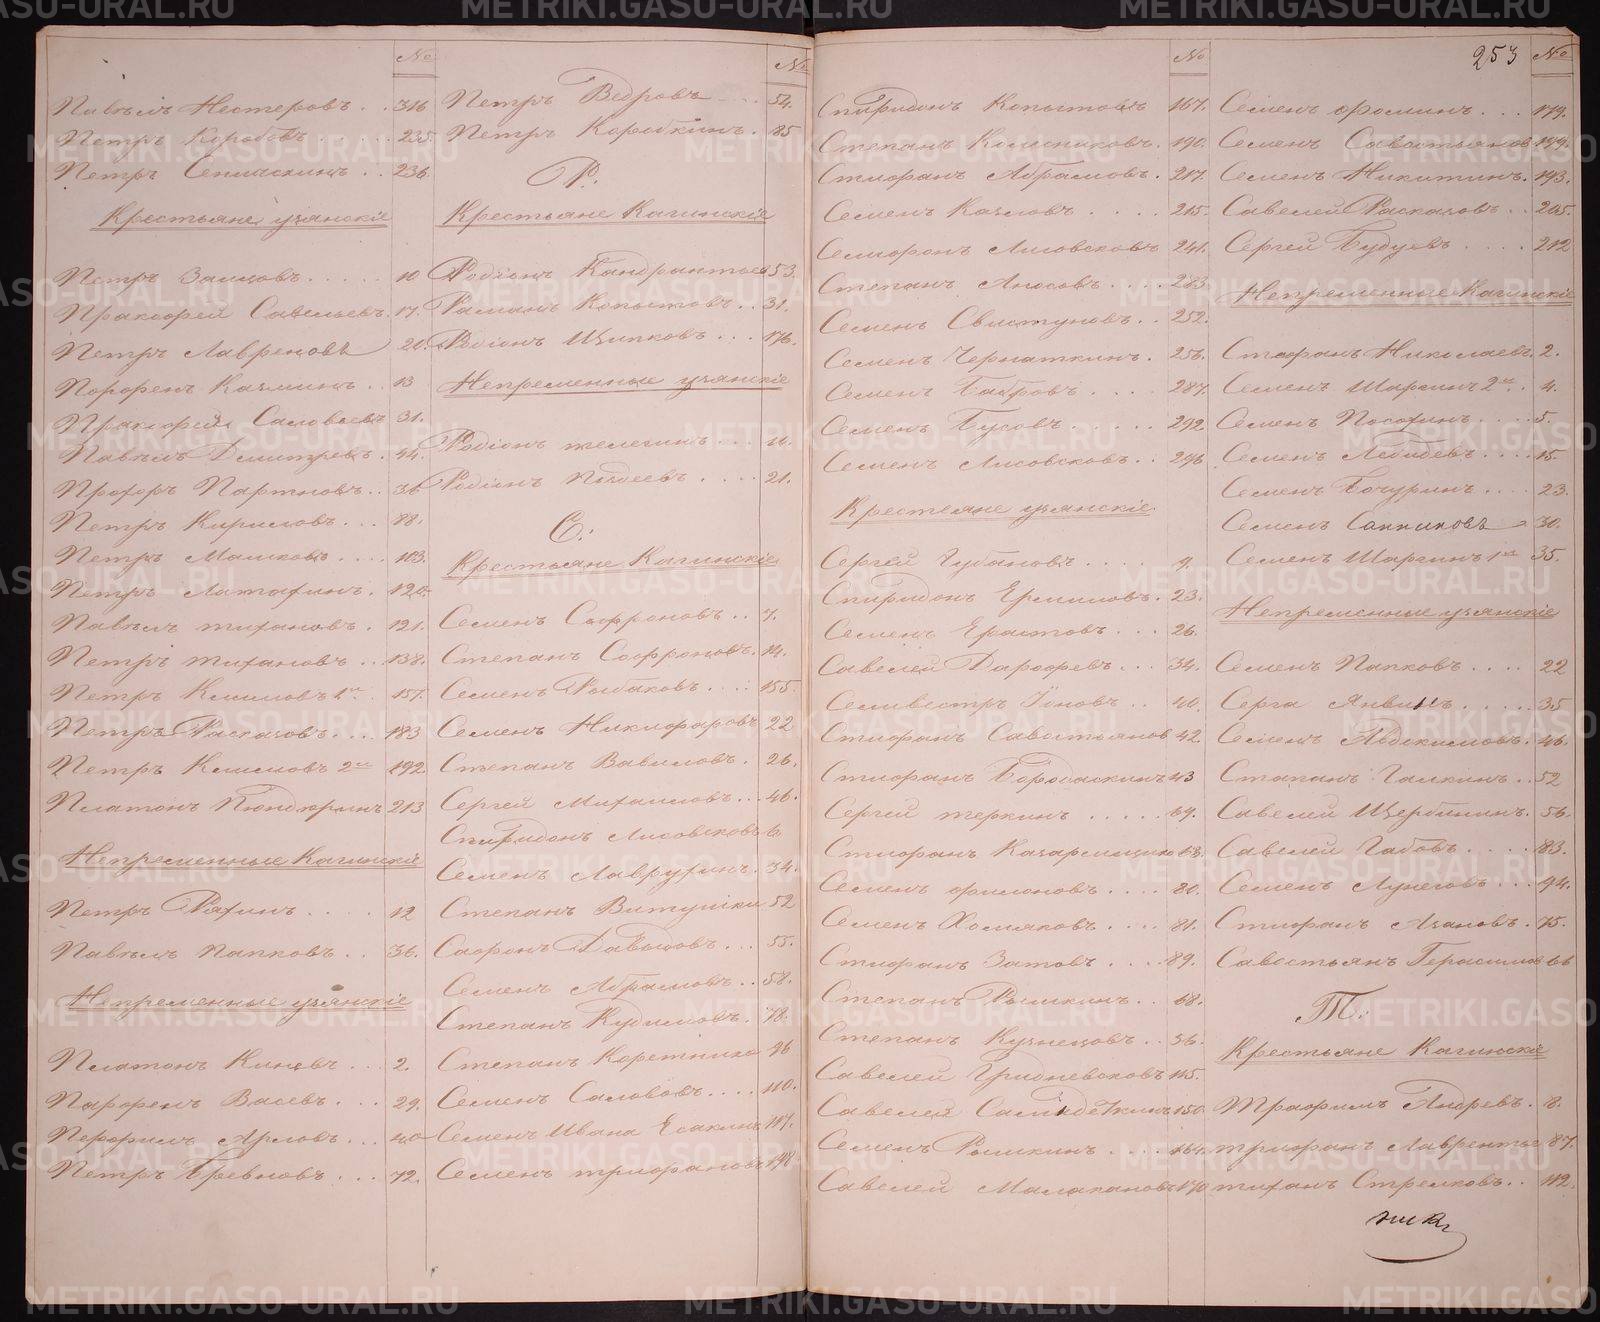 253
№
Павелъ Нестеровъ . . 316
Петръ Коробовъ 235.
Петръ . . 236
Крестьяне узянскіе
Петръ Заицовъ . . . . . 10
Пракофей Савельевъ. 17.
Петръ Лавреновъ 20.
Порфенъ Казминъ . . 13
Пракофей Саловьевъ 31.
Павелъ Дмитревъ . 44.
Прохоръ Партновъ . . 36
Петръ Кириловъ . . . 88.
Петръ Машковъ . . . . 103.
Петръ Латохинъ . 120.
Павелъ тихановъ . 121.
Петръ тихановъ . . 138.
Петръ Климовъ 1й . . 157.
Петръ Расказовъ . . . 183
Петръ Климовъ 2й 192.
Платонъ Пюндюринъ 213
Непременные Кагинскіе
Петръ Ряхинъ . . . . 12
Павелъ Папковъ . . 36.
Непременные узянскіе
Платонъ . . . 2.
Парфенъ Васевъ . . . 29.
Перфилъ Арловъ . . . 40
Петръ Бревновъ . . . 72.
№
Петръ Ведровъ . . . 54.
Петръ Коробкинъ . 85
Р.
Крестьяне Кагинскіе
Родіонъ 53.
Раманъ Копытовъ . . 31.
Родіонъ Щипковъ . . . 176.
Непременные узянскіе
Родіонъ желегинъ . . . 11.
Родіонъ Поздеевъ . . . . 21.
С.
Крестьяне Кагинскіе
Семенъ Сафроновъ . . 7.
Степанъ Сафроновъ. 14.
Семенъ Рыбаковъ . . . 155.
Семенъ Никифаровъ 22
Степанъ Вавиловъ . 26.
Сергей Михаиловъ . . . 46.
Спиридонъ Лисовсковъ
Семенъ Лаврухинъ . 34.
Степанъ Витушки 52
Сафронъ Давыдовъ . . . 55.
Семенъ Абрамовъ . . 58.
Степанъ Кудимовъ . 78.
Степанъ 96
Семенъ Салововъ . . . . 110.
Семенъ Ивана 107.
Семенъ трифановъ 148
№
Спиридонъ Копытовъ 167.
Степанъ Колесниковъ . 190.
Стифанъ Абрамовъ . 217.
Семенъ Казловъ . . . . 215.
Семфронъ Лисовсковъ 241.
Степанъ Аносовъ . . . . 283.
Семенъ Свистуновъ . . 252.
Семенъ Чернаткинъ . 256.
Семенъ Бабровъ . . . . 287.
Семенъ Бусовъ . . . . . . 292.
Семенъ Лисовсковъ . . 296
Крестеяне узянскіе.
Сергей Губановъ . . . . 9.
Спиридонъ Ермиловъ . 23.
Семенъ Ерастовъ . . . 26.
Савелей Дарофевъ . . . 34.
Семивестръ Іоновъ . . 40.
Стифанъ Савостьянов 42.
Стифанъ Бородаскинъ 43
Сергей теркинъ . . . . . 64.
Стифанъ 13.
Семенъ филоновъ . . . . 80.
Семенъ Хомяковъ . . . . 81.
Стифанъ Зотовъ . . . . 89.
Степанъ Рымкинъ . . 68.
Степанъ Кузнецовъ . . 36.
Савелей Гридневсковъ 145.
Савелей 150.
Семенъ Рымкинъ . . . . 164.
Савелей Малакановъ 170
№
Семенъ фоминъ . . . 173.
Семенъ Савостьянов 179.
Семенъ Никитинъ . 193.
Савелей Расказовъ . . 205.
Сергей Будуевъ . . . . 212
Непременные Кагинскіе
Стифанъ Николаевъ. 2.
Семенъ Шаргинъ 2й . 4.
Семенъ Посохинъ . . . . 5.
Семенъ Лебидевъ . . . . 15.
Семенъ Бочуринъ . . . . 23.
Семенъ Санниковъ 30.
Семенъ Шаргинъ 1й 35.
Непременные узянскіе
Семенъ Папковъ . . . . 22
Серга . . . . . 35
Семенъ Авдекимовъ . 46.
Стапанъ Галкинъ . . 52
Савелей Щербининъ . 56.
Савелей Габовъ . . . . 83.
Семенъ Лунеговъ . . . 94.
Стифанъ Азановъ . 75.
Савостьянъ Герасимов 66
Т.
Крестьяне Кагинскіе
Трафимъ Андревъ . 8.
трифанъ Лаврентье 87.
тиханъ Стрелковъ . . 112.